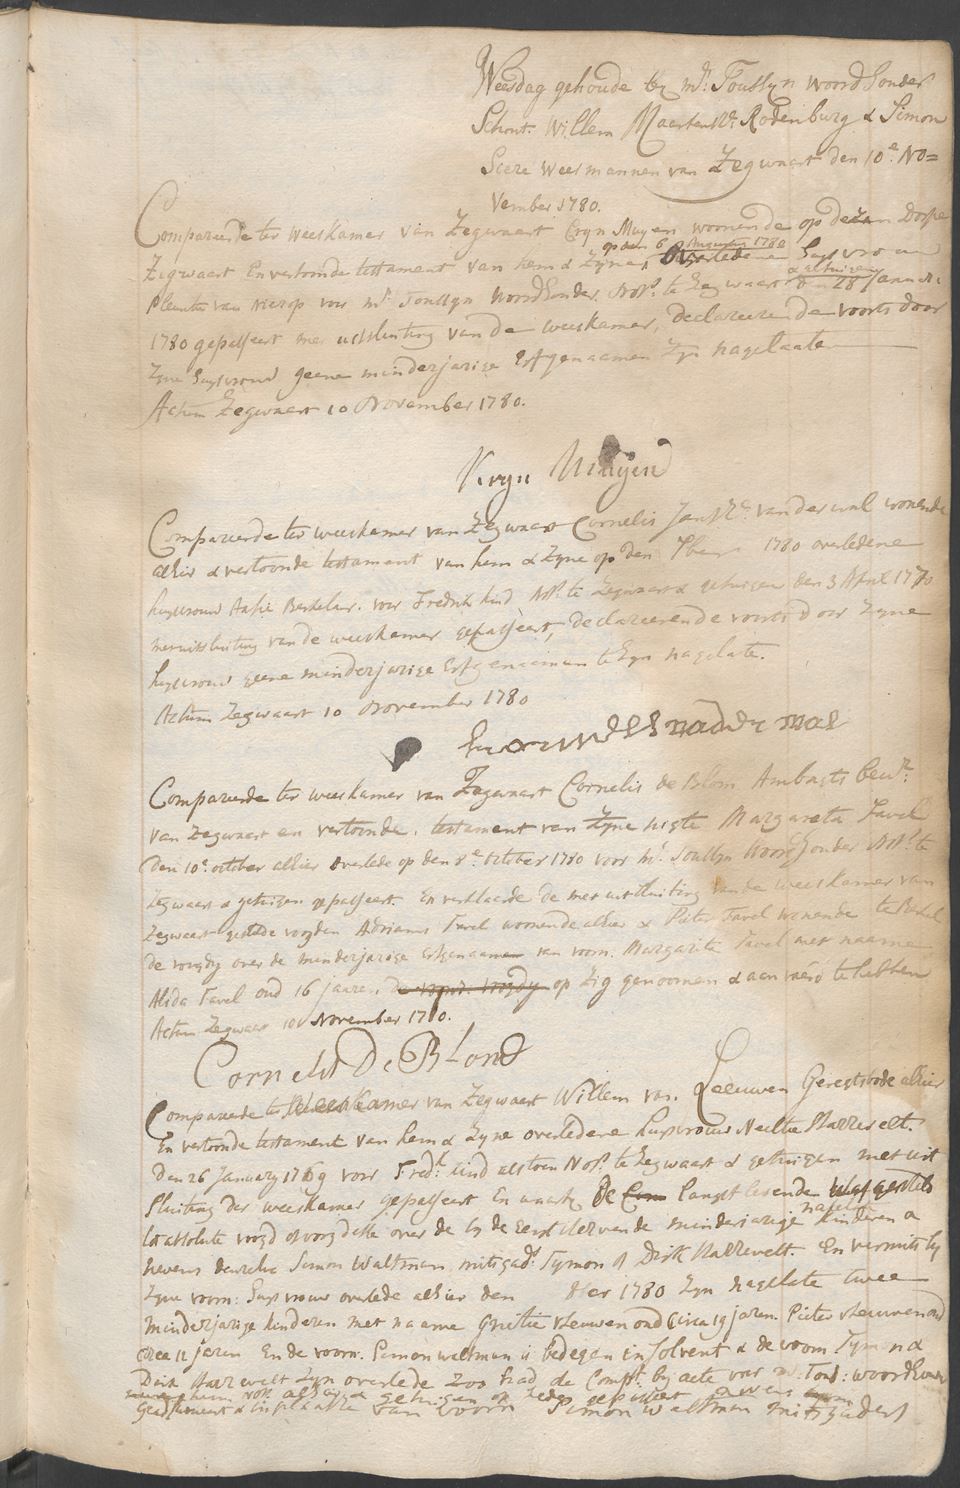 Weesdag gehoude by mr. Toussyn Woordhouder
Schout. Willem Maertensz. Rodenburg & Simon
weesmannen van Zegwaart den 10e. No=
vember 1780.
Compareerde ter weeskamer van Zegwaart Cryn Muyen woonende op Dorpe
op den 6 Augustus 1780
Zegwaart En vertoonde testament van hem & Zyne overledene Huysvrouw
& getuigen
Pleuntie van Nierop voor mr. Toussyn Woordhouder. Nots. te Zegwaart den 28 Januari
1780 gepasseert met uitsluiting van de weeskamer, declareerende voorts door
Zyne huysvrouw geene minderjarige Erfgenaamen Zyn nagelaate
Actum Zegwaart 10 November 1780.
Kryn Muijen
Compareerde ter weeskamer van Zegwaart Cornelis Jansz. van der wal wonende
alhier & vertoonde testament van hem & Zyne op den 7ber 1780 overledene
huysvrouw voor Fredrik Kind Nots. te Zegwaart & getuigen den 3 April 1770
met uitsluiting van de weeskamer gepasseert, declareerende voorts door Zyne
huysvrouw geene minderjarige Erfgenaamen te Zyn nagelate.
Actum Zegwaart 10 November 1780
Compareerde ter weeskamer van Zegwaart Cornelis de Blom Ambagts
van Zegwaart en vertoonde testament van Zyne nigte Margareta Favel
den 10e. october alhier overlede op den 8e. October 1780 voor mr. Toussyn Woordhouder Nots. te
Zegwaart & getuigen gepasseert. En verklaarde de met uitsluiting van de weeskamer van
Zegwaart gestelde voogden Adrianus Favel woonende alhier & Pieter Favel wonende
de voogdy over de minderjarige erfgenaamen van voorn. Margarita Favel met naame
Alida Favel oud 16 jaaren. de voorn. voogdy op Zig genoomen & aanvaerd te hebben
Actum Zegwaar 10 November 1780.
Cornelis De Blond
Compareerde ter Weeskamer van Zegwaart Willem van Leeuwen Geregtsbode alhier
En vertoonde testament van hem & Zyne overledene huysvrouw Neeltie Harrevelt.
Den 26 January 1769 voor Fredk. Kind als toen Nots. te Zegwaart & getuigen met uit
sluiting der weeskamer gepasseert En waarby de langstlevende
tot absolute voogd of voogdesse over de by de Eerststervende minderjarige kinderen
nevens Simon Waltman mitsgads. Tymon & Dirk Harrevelt. En vermits by
Zyne voorn: huysvrouw overlede alhier den 1780 Zyn nagelate twee
minderjarige kinderen met naame Grietie vleeuwen oud Circa 19 jaren. Pieter vleeuwen oud
Circa 11 jaren En de voorn. Simon waltman is insolvent & de voorn Tymon &
Dirk Harrevelt Zyn overlede Zoo had de Compt. by acte voor mr. Touss: woordhouder
Nots. alhier & getuigen op heden gepasseert
& in plaatse van voorn Simon Waltman mitsgaders